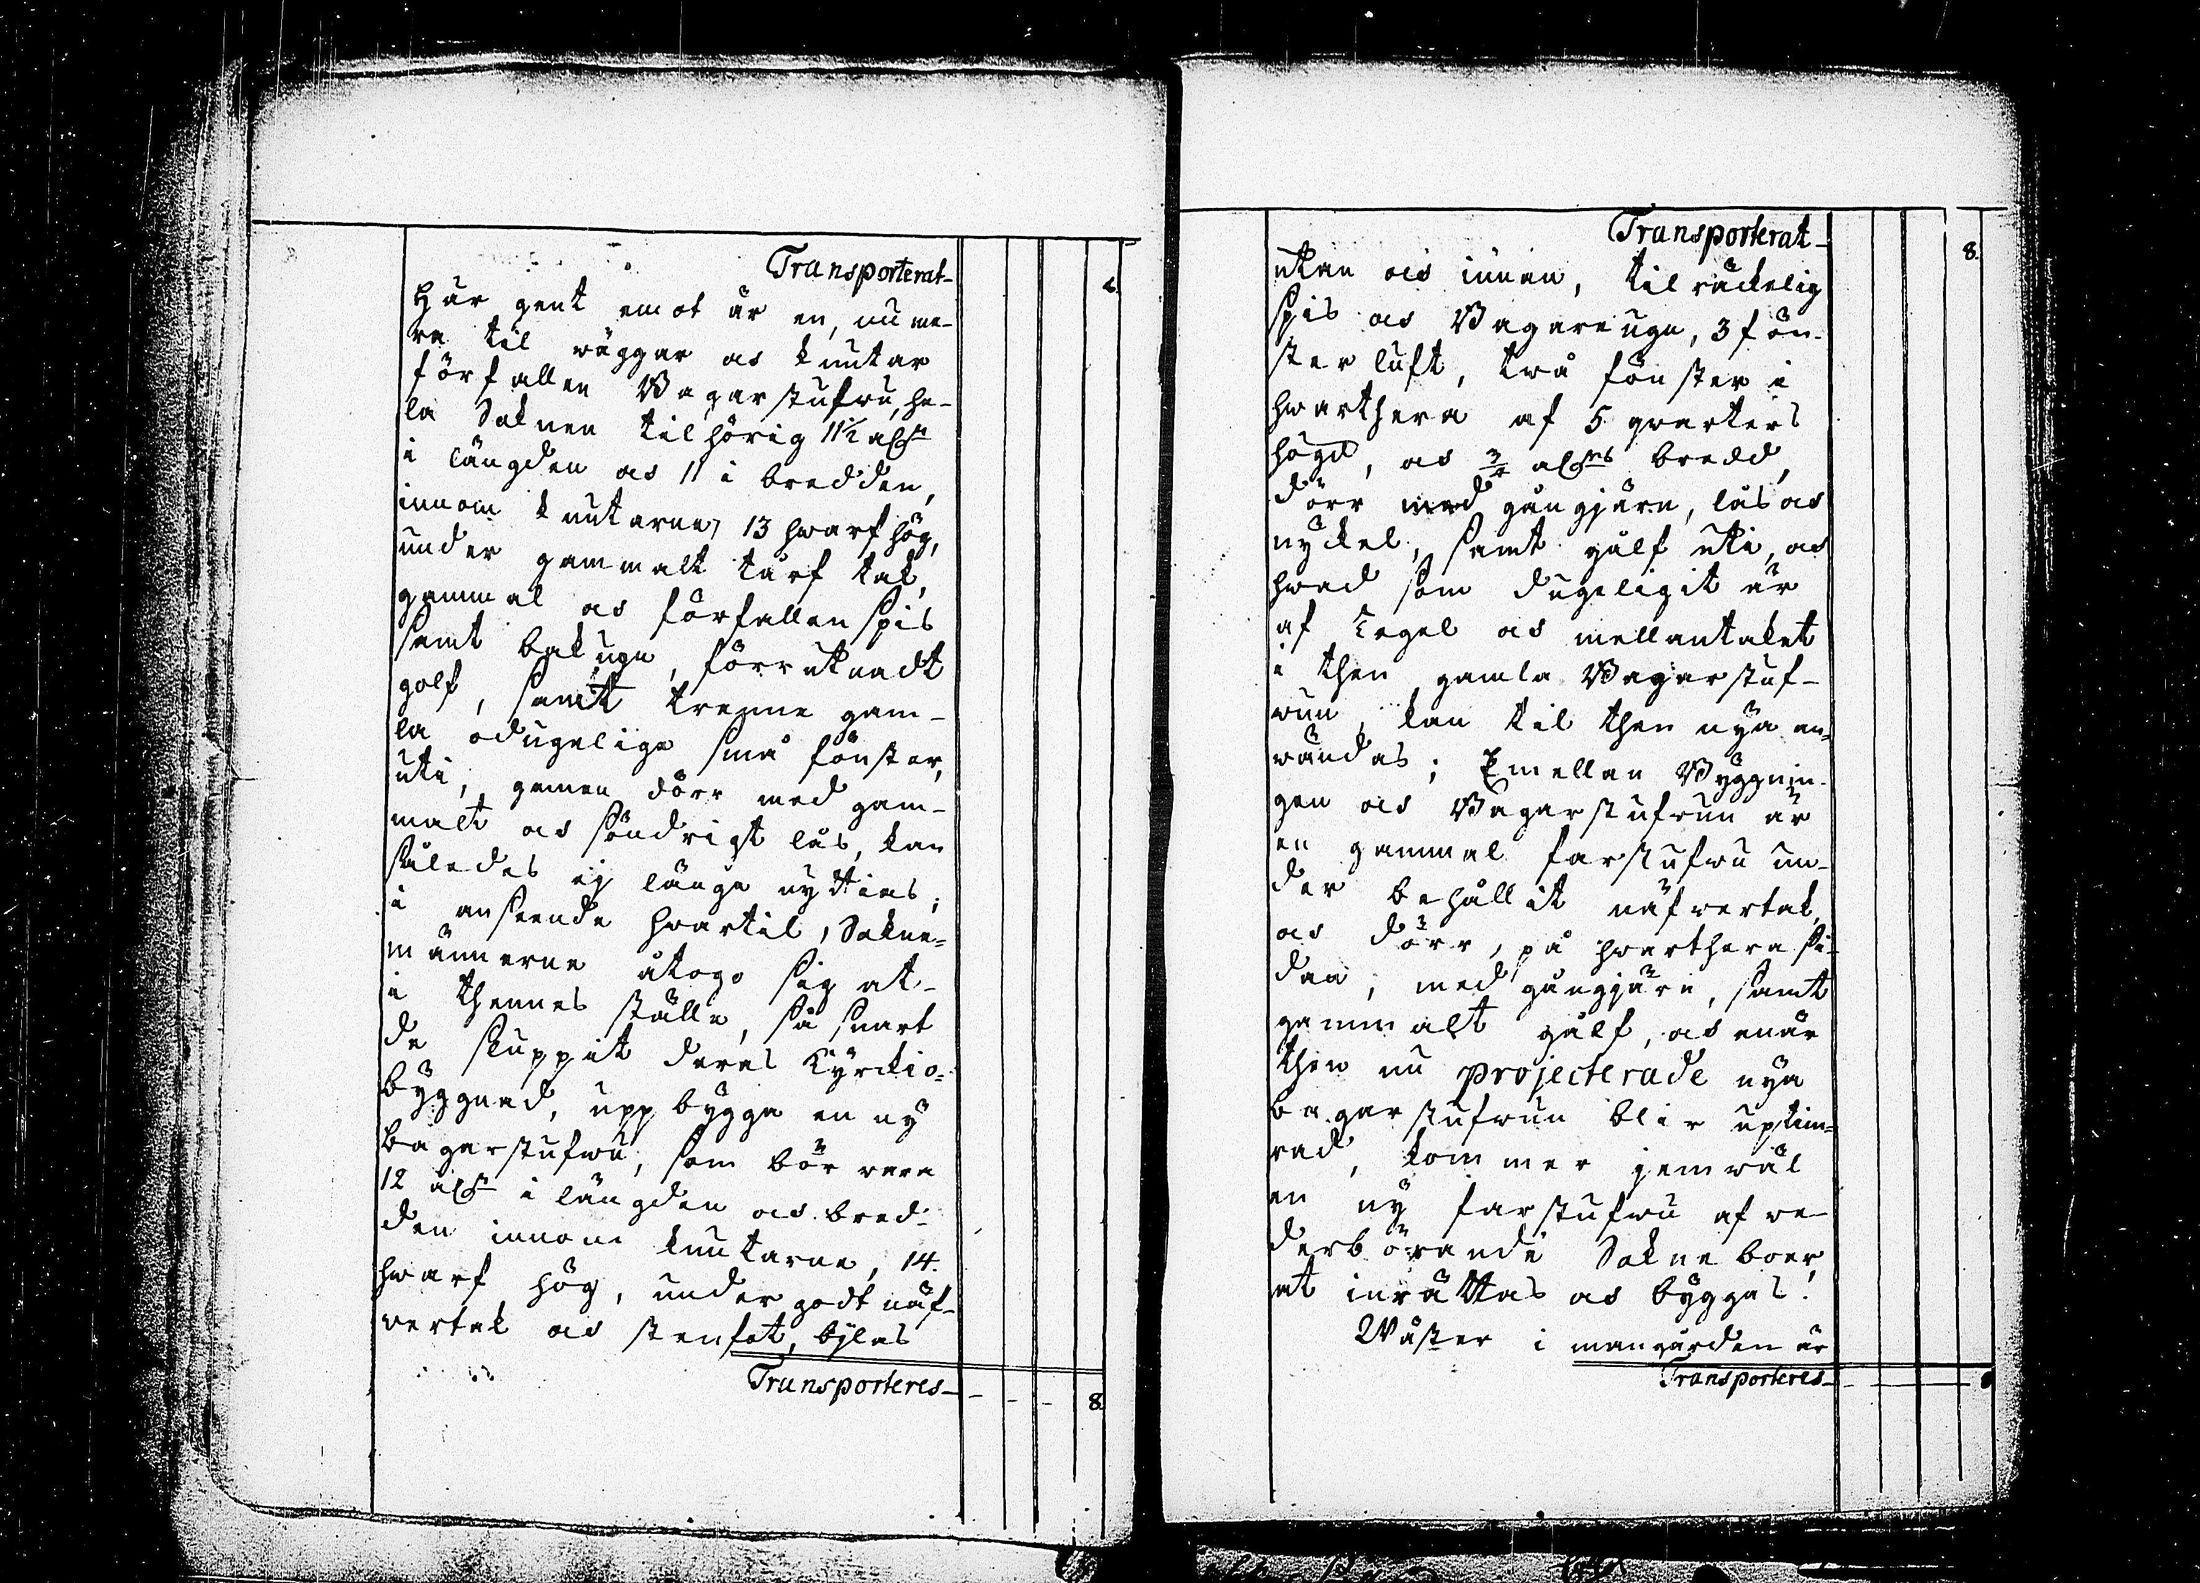 Transporterat-
6.
Här gent emot är en, nu me-
ra til wäggar as knutar
förfallen Bagarstufwu, he-
la Soknen tilhörig 11½ aln
i längden as 11 i bredden,
innom knutarne, 13 hwarf hög,
under gammalt torf tak,
gammal as förfallen spis
samt bakugn, förruknadt
golf, samt trenne gam-
la odugelige små fönster,
uti, gemen dörr med gam-
malt as söndrigt lås, kan
således ej länge nyttias;
i anseende hwartil, Sokne-
männerne åtogo sig at-
i thennes ställe, så snart
de sluppit deras Kyrckio-
byggnad, uppbygga en ny
bagarstufwu, som bör vara
12 aln i längden as bred-
den innom knutarne, 14.
hwarf hög, under godt näf-
vertak as stenfot,
Transporteres-
8.
Transporterat-
8.
utan as innan, tilräckelig
spis as Bagareugn, 3 fön-
ster luft, två fönster i
hwarthera af 5 qvarters
högd, as ¾ alns bredd,
dörr med gångjärn, lås as
nyckel, samt gålf uti, as
hwad som dugeligit är
af Tegel as mellantaket
i then gamla Bagarstuf-
wun, kan til then nya an-
wändas; Emellan Byggnin-
gen as Bagarstufwun är
en gammal farstufwu un-
der behållit näfvertak,
as dörr, på hwarthera si-
dan, med gångjärn, samt
gammalt gålf, as enär
then nu projecterade nya
bagarstufwun blir uptim-
rad, kommer jemwäl
en ny farstufwu af we-
derbörande Sokneboer
at inrättas as byggas.
Wäster i mangården är
Transporteres-